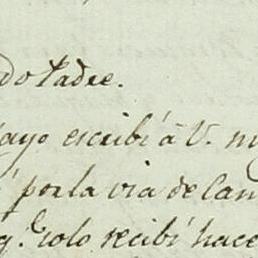 do Padre.
ayo escribí á V. m
por la via de Can
q.e solo recibí hace